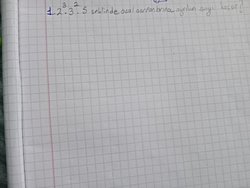 1. 2³.3².5 şeklinde asal çarpanlarına ayrılan sayı kaçtır?